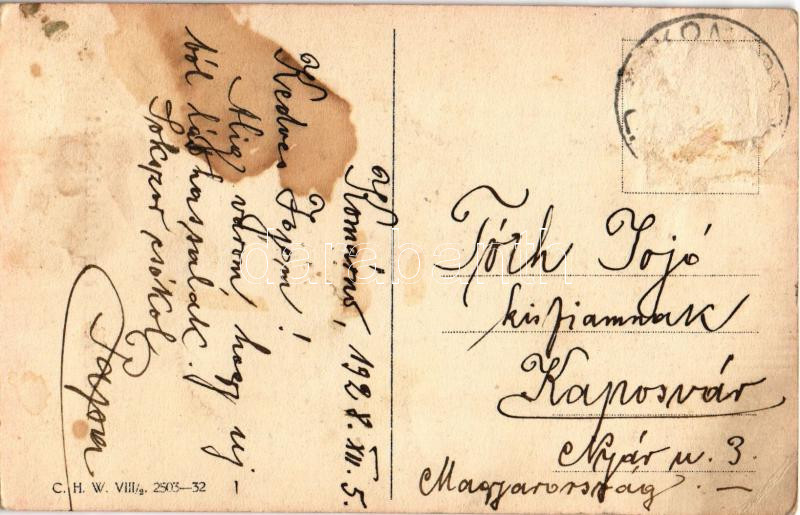 Komárno, 1928. XII. 5.
Kedves Jojóm!
Alig várom, hogy uj-
ból láthassalak.
Sokszor csókol
Tóth Jojó
kisfiamnak
Kaposvár
Nyár u. 3.
Magyarország.
C. H. W. VIII/2. 2503—32
darabanth